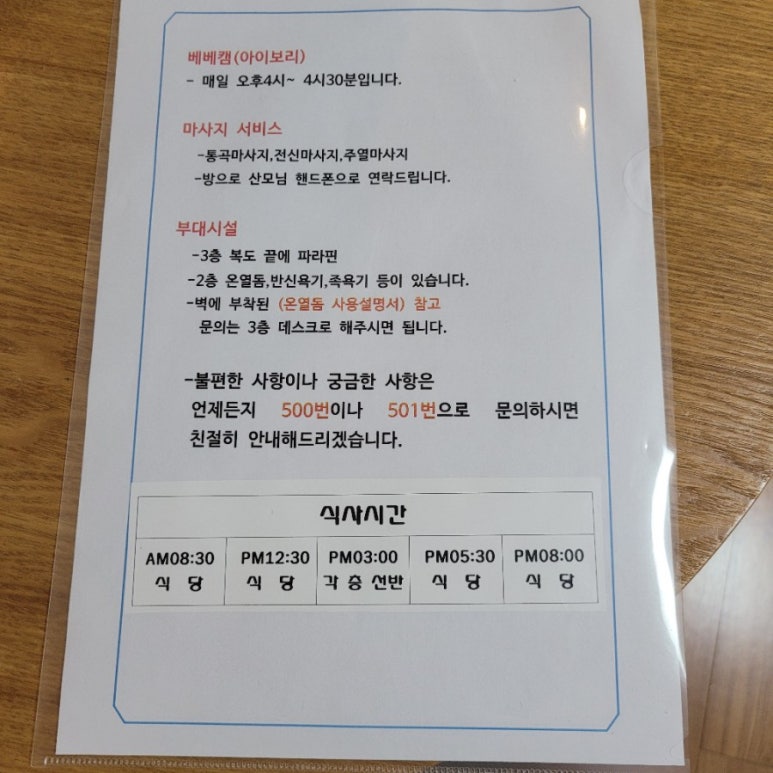 베베캠(아이보리)
- 매일 오후4시~ 4시30분입니다.
마사지 서비스
-통곡마사지,전신마사지,주열마사지
-방으로 산모님 핸드폰으로 연락드립니다.
부대시설
-3층 복도 끝에 파라핀
-2층 온열돔,반신욕기,족욕기 등이 있습니다.
-벽에 부착된 (온열돔 사용설명서) 참고
문의는 3층 데스크로 해주시면 됩니다.
-불편한 사항이나 궁금한 사항은
언제든지 500번이나 501번으로 문의하시면
친절히 안내해드리겠습니다.
식사시간
AM08:30 PM12:30 PM03:00 PM05:30 PM08:00
식 당 식 당 각 층 선반 식 당 식 당